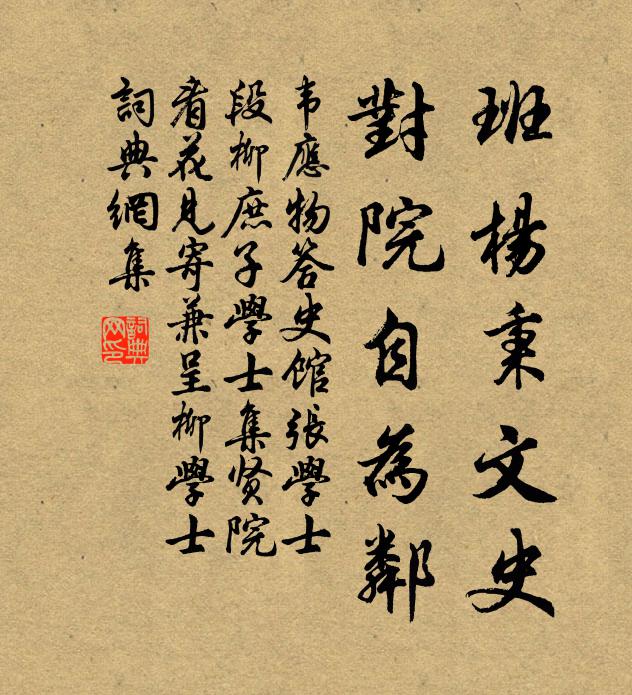 班楊秉文史
對院自為鄰
韦應物答史馆張學士
段柳庶子學士集贤院
看花見寄兼呈柳學士
詞典網集
詞典网印